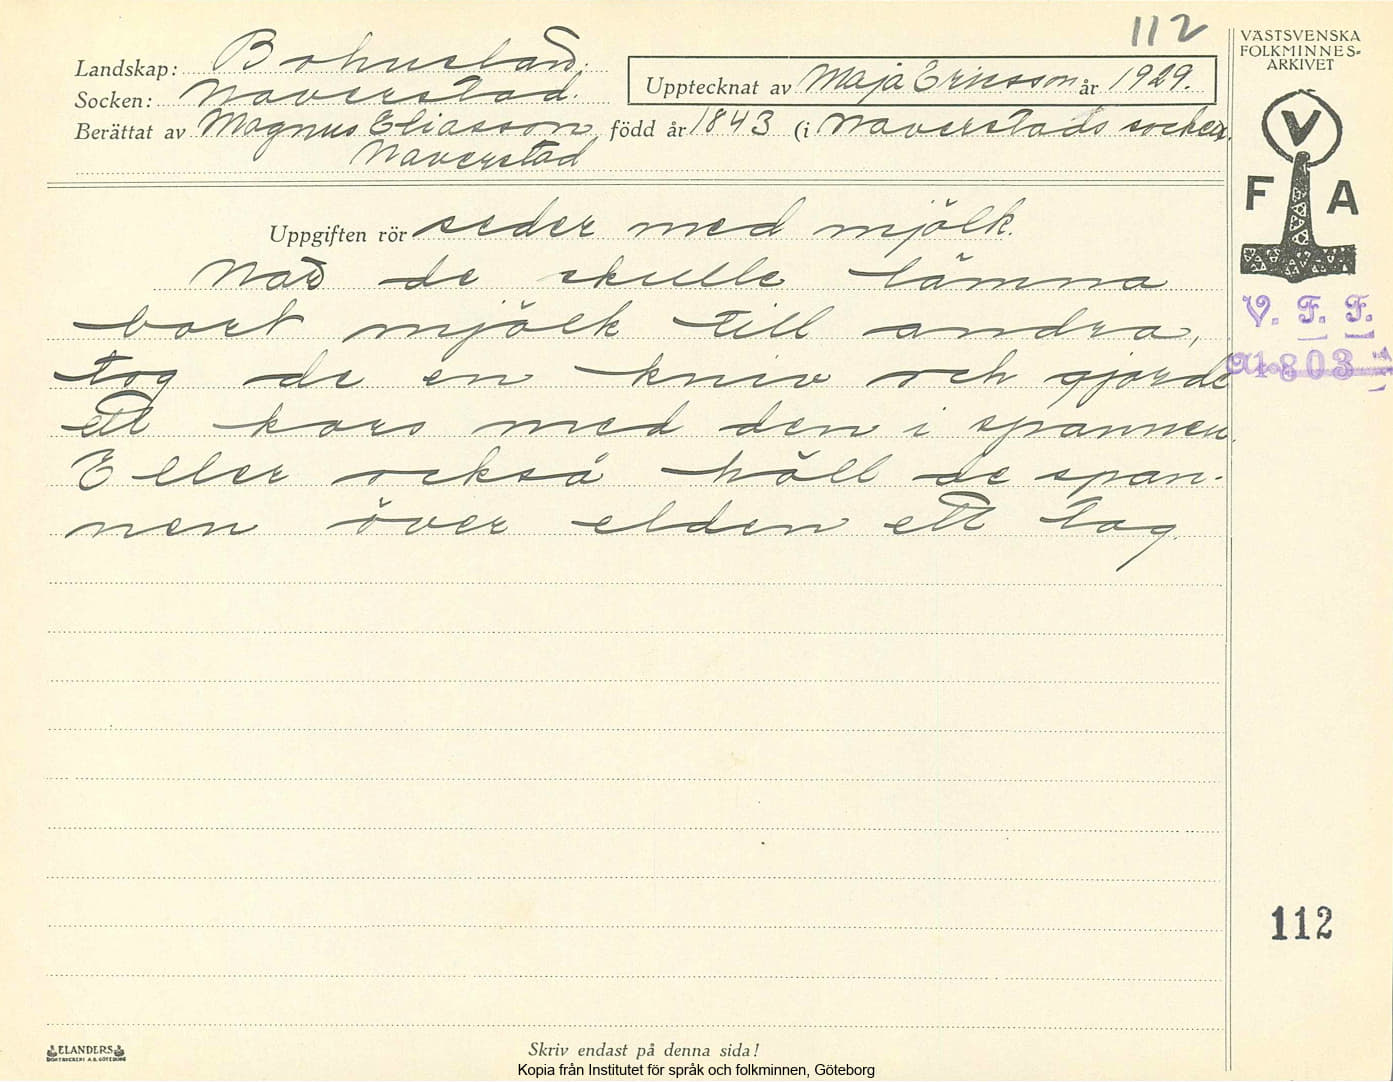 112
VÄSTSVENSKA
FOLKMINNES-
ARKIVET
Landskap: Bohuslän.
Socken: Naverstad.
Upptecknat av Maja Ericsson år 1929.
Berättat av Magnus Eliasson, född år 1843 (i Naverstads socken.
Naverstad
V
F A
Uppgiften rör seder med mjölk.
När de skulle lämna
bort mjölk till andra,
tog de en kniv och gjorde
ett kors med den i spannen.
Eller också höll de span-
nen över elden ett tag.
V. F. F.
1803
112
ELANDERS
BOKTRYCKERI A.B. GÖTEBORG
Skriv endast på denna sida!
Kopia från Institutet för språk och folkminnen, Göteborg